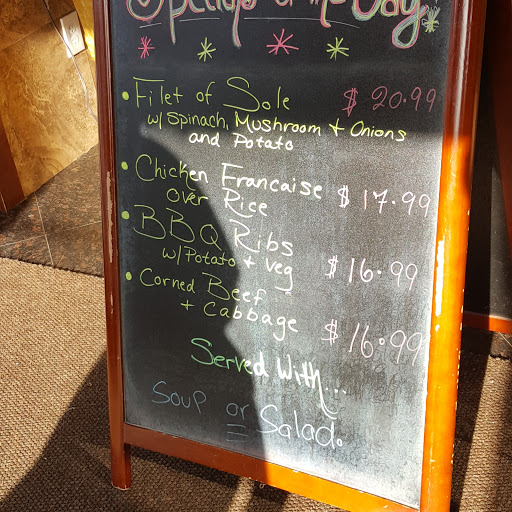 Specials of the Day
• Filet of Sole $20.99
w/ Spinach, Mushroom + Onions
and Potato
• Chicken Francaise $17.99
over Rice
• BBQ Ribs
w/ Potato + Veg $16.99
• Corned Beef
+ Cabbage $16.99
Served With...
Soup or Salad.